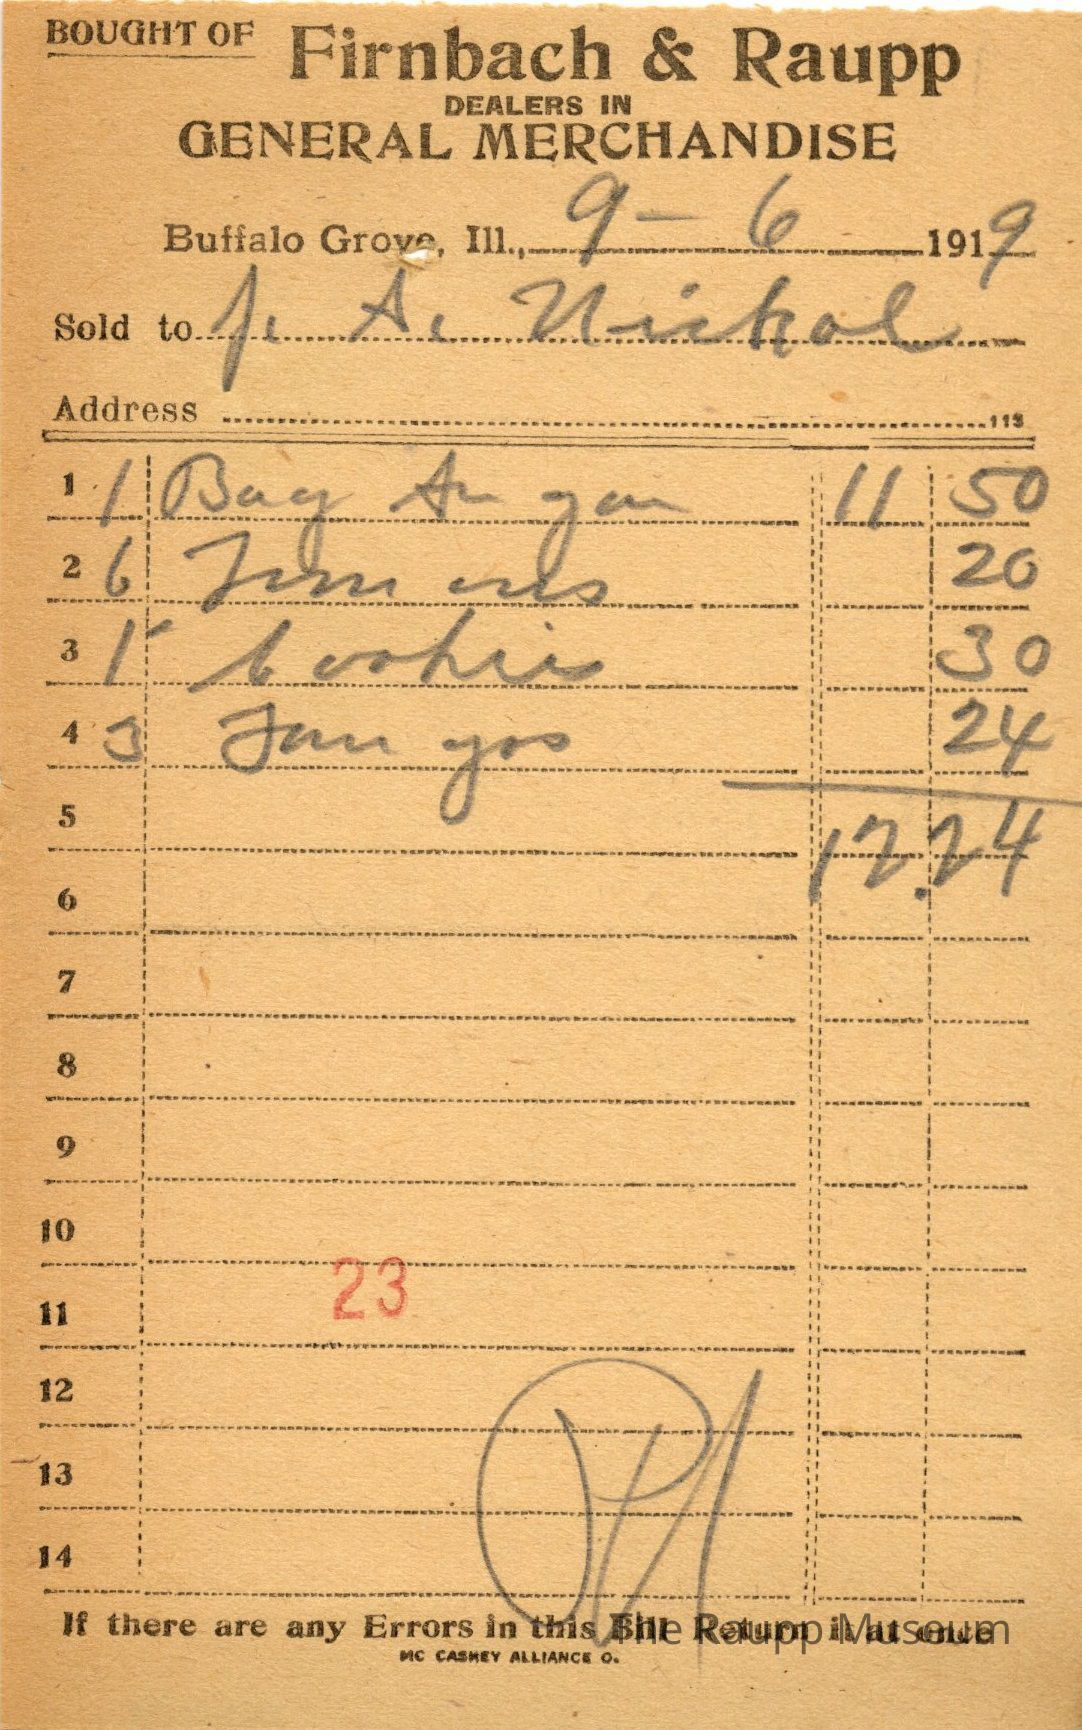 BOUGHT OF Firnbach & Raupp
DEALERS IN
GENERAL MERCHANDISE
Buffalo Grove, Ill., 9 - 6 1919
Sold to J. A. Nickol
Address 113
1 1 Bag 11 50
2 6 20
3 1 Cookies 30
4 3 24
5 12.24
6
7
8
9
10
23
11
12
13
14
If there are any Errors in this Bill Return it at once
The Raupp Museum
MC CASKEY ALLIANCE O.